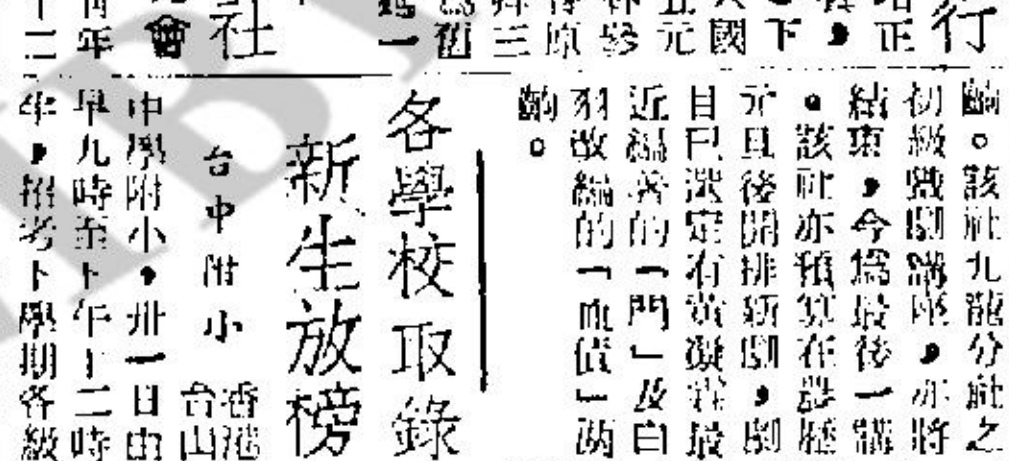 行
正
下
國
元
參
原
三
舊
一
社
會
年
十二
齣。該社九龍分社之
初級戲劇講座，亦將
結束，今爲最後一講
。該社亦預算在農曆
元旦後開排新劇，劇
目已選定有黃凝霖最
近編著的「門」及白
羽改編的「血債」兩
齣。
各學校取錄
新生放榜
台中附小
香港
台山
中學附小，卅一日由
早九時至下午十二時
半，招考下學期各級